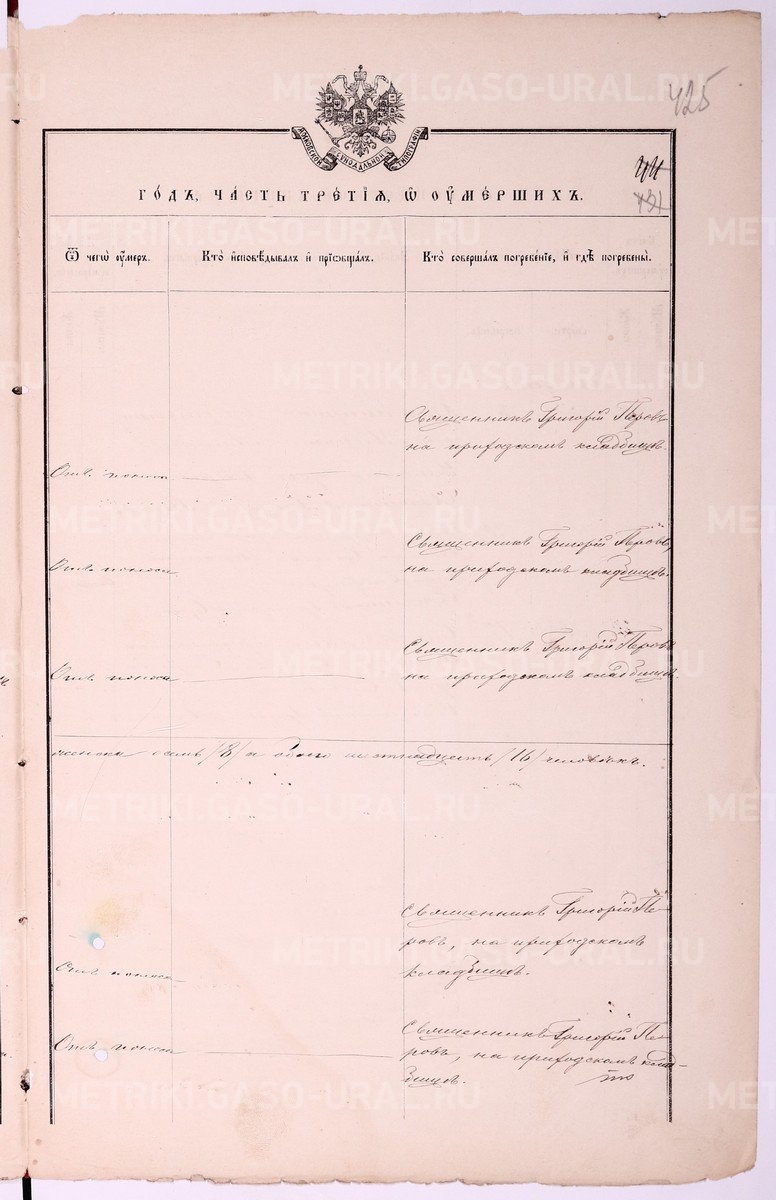 425
МОСКОВСКОЙ СѴНОДАЛЬНОЙ ТИПОГРАФІИ
ГО́ДЪ, ЧА́СТЬ ТРЕ́ТІѦ, Ѡ҆ ОУ҆МЕ́РШИХЪ.
431
Ѿ чегѡ̀ оу҆́меръ.
Кто̀ и҆сповѣ́дывалъ и҆ прїѡбща́лъ.
Кто̀ соверша́лъ погребе́нїе, и҆ гдѣ̀ погребены̀.
Священникъ Григорій Перовъ
на приходскомъ кладбищѣ.
Отъ поноса
Священникъ Григорій Перовъ,
на приходскомъ кладбищѣ.
Отъ поноса
Священникъ Григорій Перовъ
на приходскомъ кладбищѣ.
Отъ поноса
женска осмь /8/ а обоего шестнадцать /16/ человѣкъ.
Священникъ Григорій Пе-
ровъ, на приходскомъ
кладбищѣ.
Отъ поноса
Священникъ Григорій Пе-
ровъ, на приходскомъ клад-
бищѣ.
Отъ поноса
METRIKI.GASO-URAL.RU